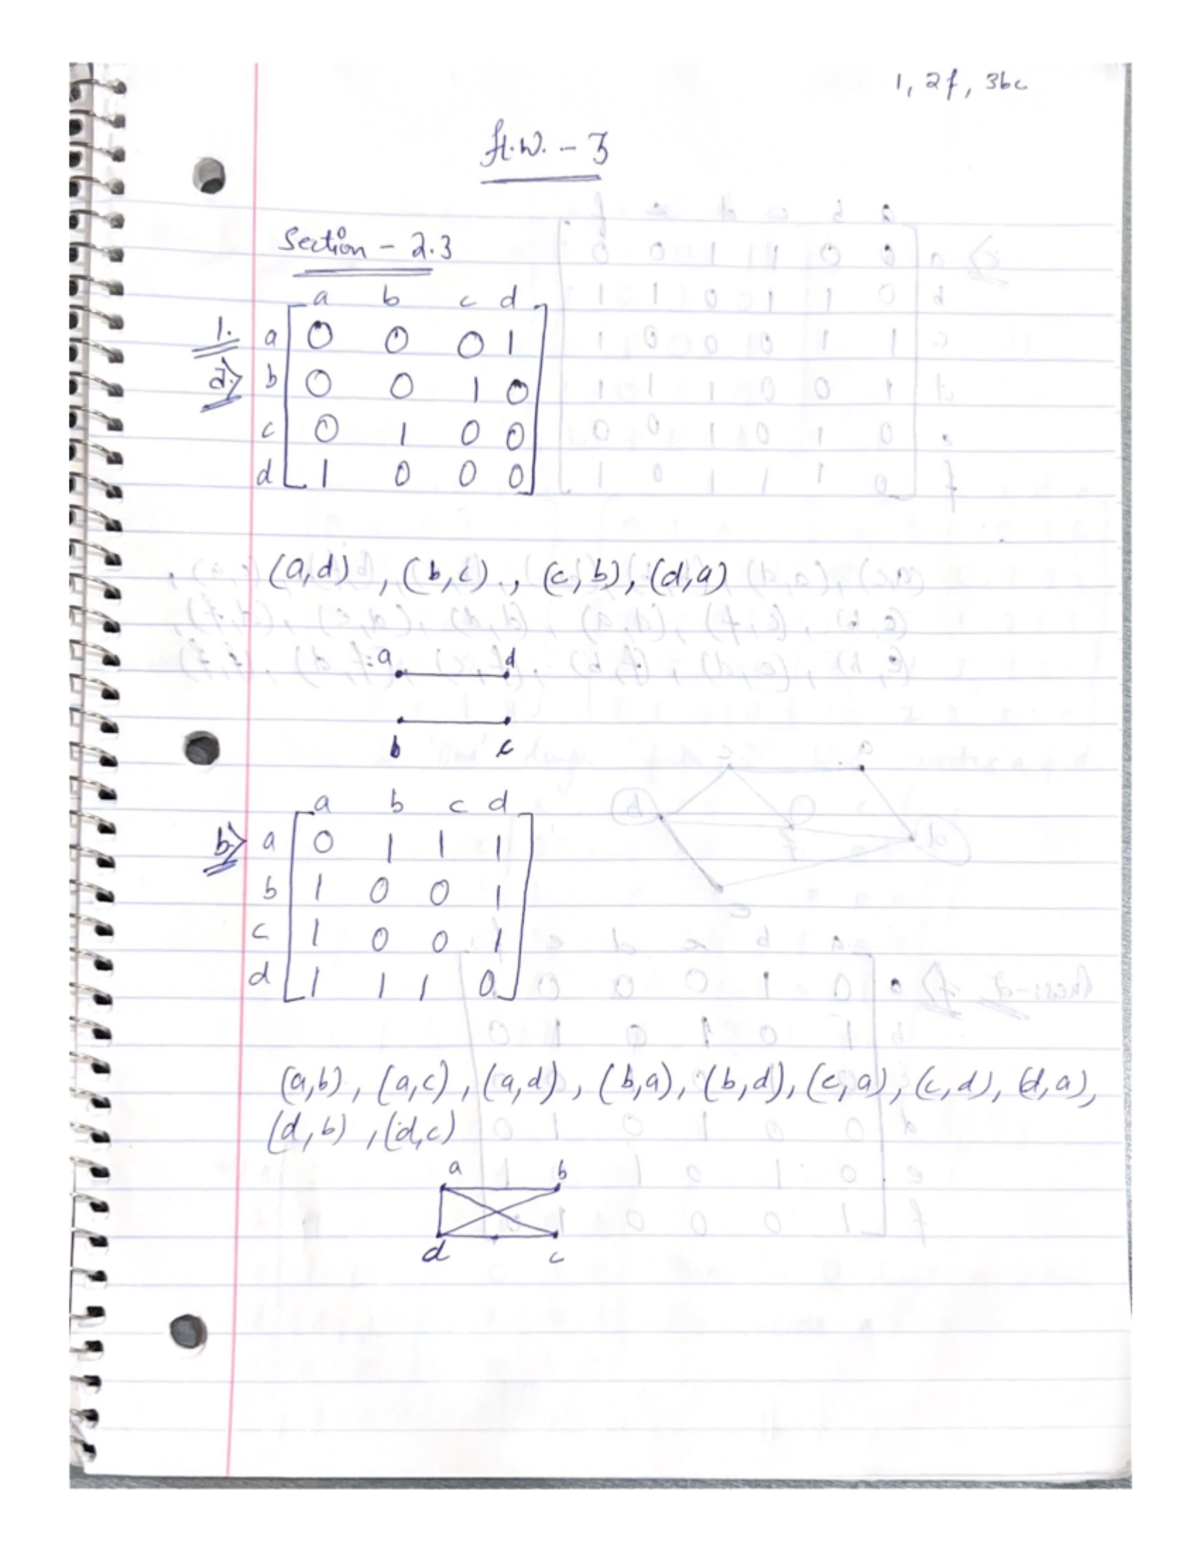 1, 2f, 3bc
H.W. - 3
Section - 2.3
a b c d
1. a 0 0 0 1
a) b 0 0 1 0
c 0 1 0 0
d 1 0 0 0
(a,d), (b,c), (c,b), (d,a)
a d
b c
a b c d
b) a 0 1 1 1
b 1 0 0 1
c 1 0 0 1
d 1 1 1 0
(a,b), (a,c), (a,d), (b,a), (b,d), (c,a), (c,d), (d,a),
(d,b), (d,c)
a b
d c